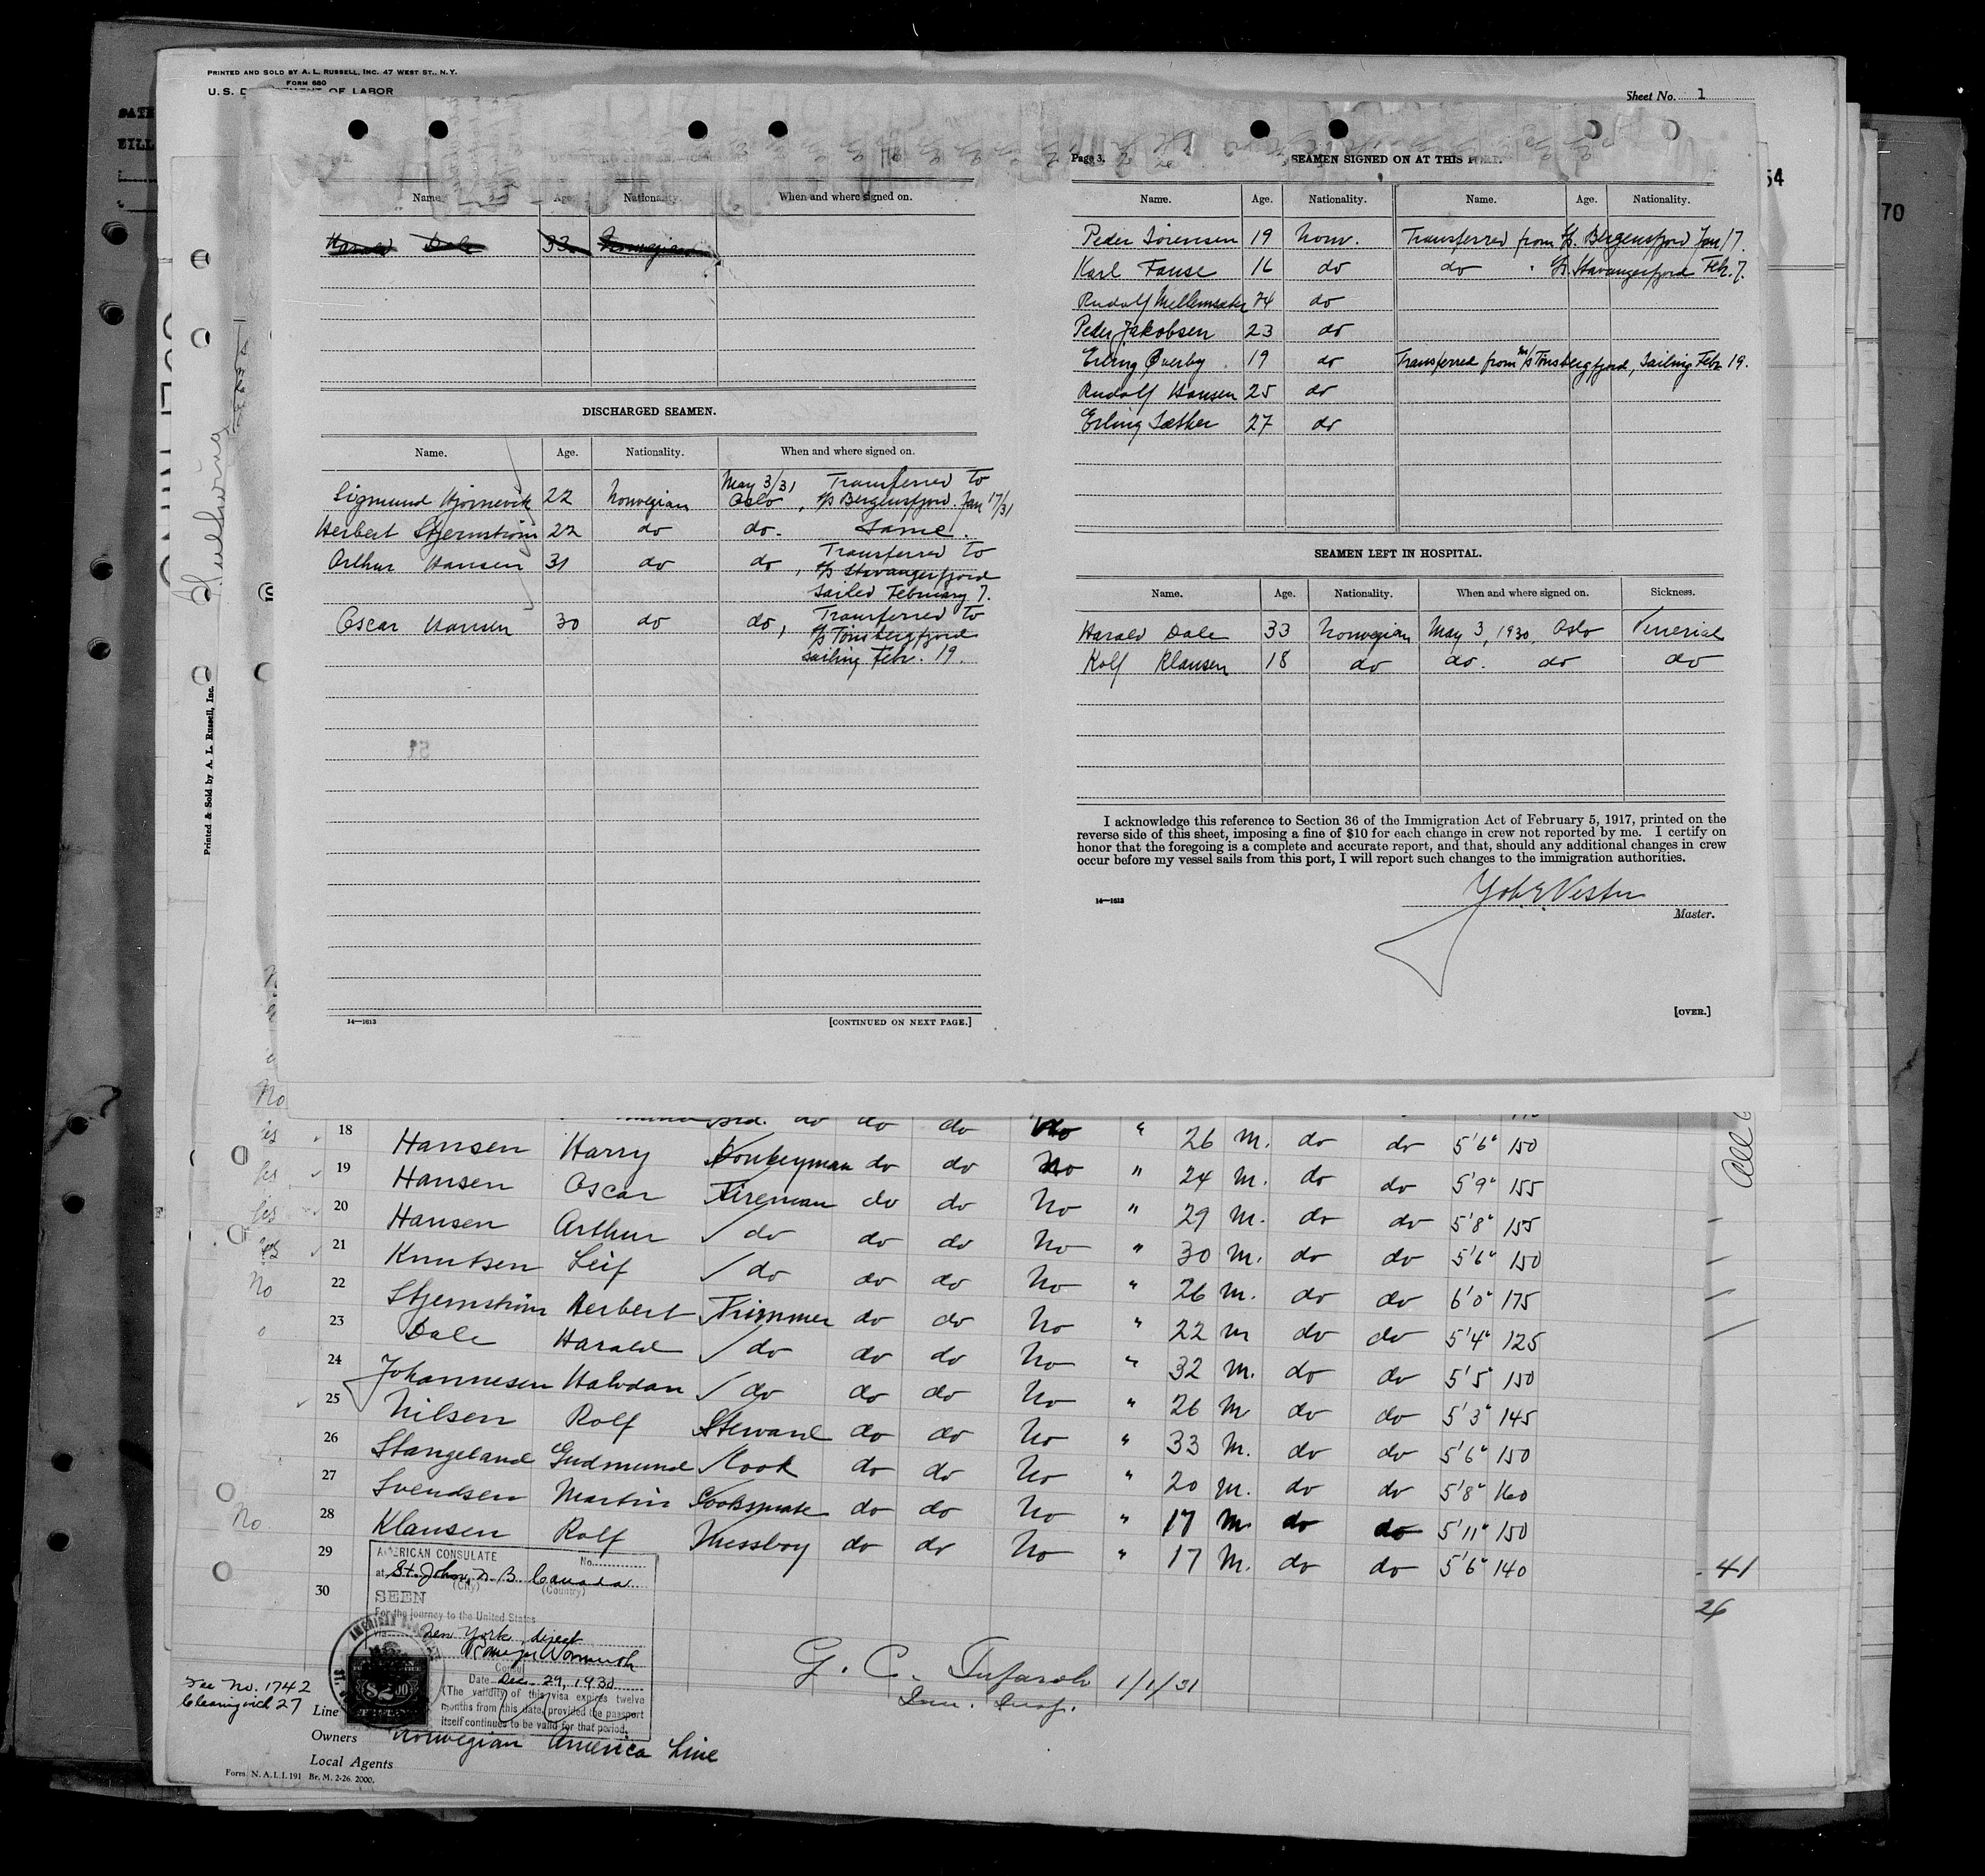 PRINTED AND SOLD BY A. L. RUSSELL, INC. 47 WEST ST., N. Y.
FORM 680
U. S. OF LABOR
Sheet No. 1
54
70
Name. Age. Nationality. When and where signed on.
Harald Dale 33 Norwegian
DISCHARGED SEAMEN.
Name. Age. Nationality. When and where signed on.
Sigmund Bjørnevik 22 Norwegian May 3/31 Oslo, Transferred to S/S Bergensfjord. Jan 17/31
Herbert Stjernström 22 do do. Same.
Arthur Hansen 31 do do, Transferred to S/S Stavangerfjord
Sailed February 7.
Oscar Hansen 30 do do, Transferred to S/S Tönsbergfjord
sailing Febr. 19.
14—1613
[CONTINUED ON NEXT PAGE.]
Page 3.
SEAMEN SIGNED ON AT THIS PORT.
Name. Age. Nationality. Name. Age. Nationality.
Peder Sörensen 19 Norw. Transferred from S/S. Bergensfjord Jan 17.
Karl Fause 16 do do S/S. Stavangerfjord Feb. 7.
Rudolf Mellemsæter 24 do
Peder Jakobsen 23 do
Erling Øverby 19 do Transferred from M/S Tönsbergfjord, Sailing Febr 19.
Rudolf Hansen 25 do
Erling Sæther 27 do
SEAMEN LEFT IN HOSPITAL.
Name. Age. Nationality. When and where signed on. Sickness.
Harald Dale 33 Norwegian May 3, 1930, Oslo Venerial
Rolf Klausen 18 do do. do do
I acknowledge this reference to Section 36 of the Immigration Act of February 5, 1917, printed on the
reverse side of this sheet, imposing a fine of $10 for each change in crew not reported by me. I certify on
honor that the foregoing is a complete and accurate report, and that, should any additional changes in crew
occur before my vessel sails from this port, I will report such changes to the immigration authorities.
14—1613
Master.
[OVER.]
Printed & Sold by A. L. Russell, Inc.
No
18 Hansen Harry Donkeyman do do No " 26 M. do do 5'6" 150
19 Hansen Oscar Fireman do do No " 24 M. do do 5'9" 155
20 Hansen Arthur do do do No " 29 M. do do 5'8" 155
21 Knutsen Leif do do do No " 30 M. do do 5'6" 150
No 22 Stjernström Herbert Trimmer do do No " 26 M. do do 6'0" 175
23 Dale Harald do do do No " 22 M do do 5'4" 125
24 Johannesen Halvdan do do do No " 32 M. do do 5'5" 150
25 Nilsen Rolf Steward do do No " 26 M do do 5'3" 145
26 Stangeland Gudmund Cook do do No " 33 M. do do 5'6" 150
27 Svendsen Martin Cooksmate do do No " 20 M. do do 5'8" 160
No 28 Klausen Rolf Messboy do do No " 17 M do do 5'11" 150
29 " 17 M. do do 5'6" 140
30
41
26
AMERICAN CONSULATE
No.
at St. John, N. B. Canada
(City) (Country)
SEEN
For the journey to the United States
Via New York direct
Consul
Date Dec. 29, 1930
(The validity of this visa expires twelve
months from this date, provided the passport
itself continues to be valid for that period.
$2.00
Fee No. 1742
27
1/1/31
Imm. Insp.
Line
Owners Norwegian America Line
Local Agents
Form N. A. L. I. 191 Br. M. 2-26. 2000.